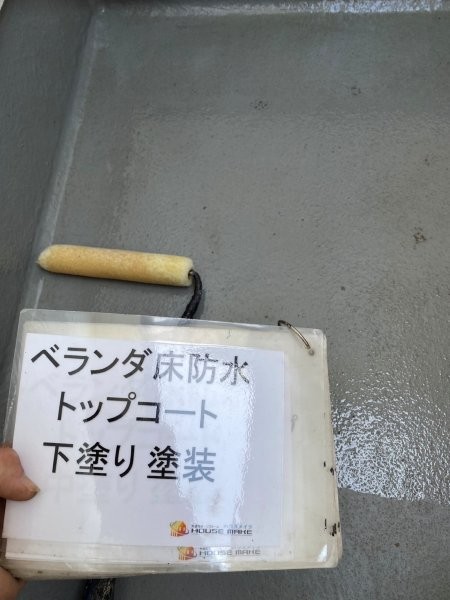 ベランダ床防水
トップコート
下塗り塗装
HOUSE MAKE
HOUSE MAKE